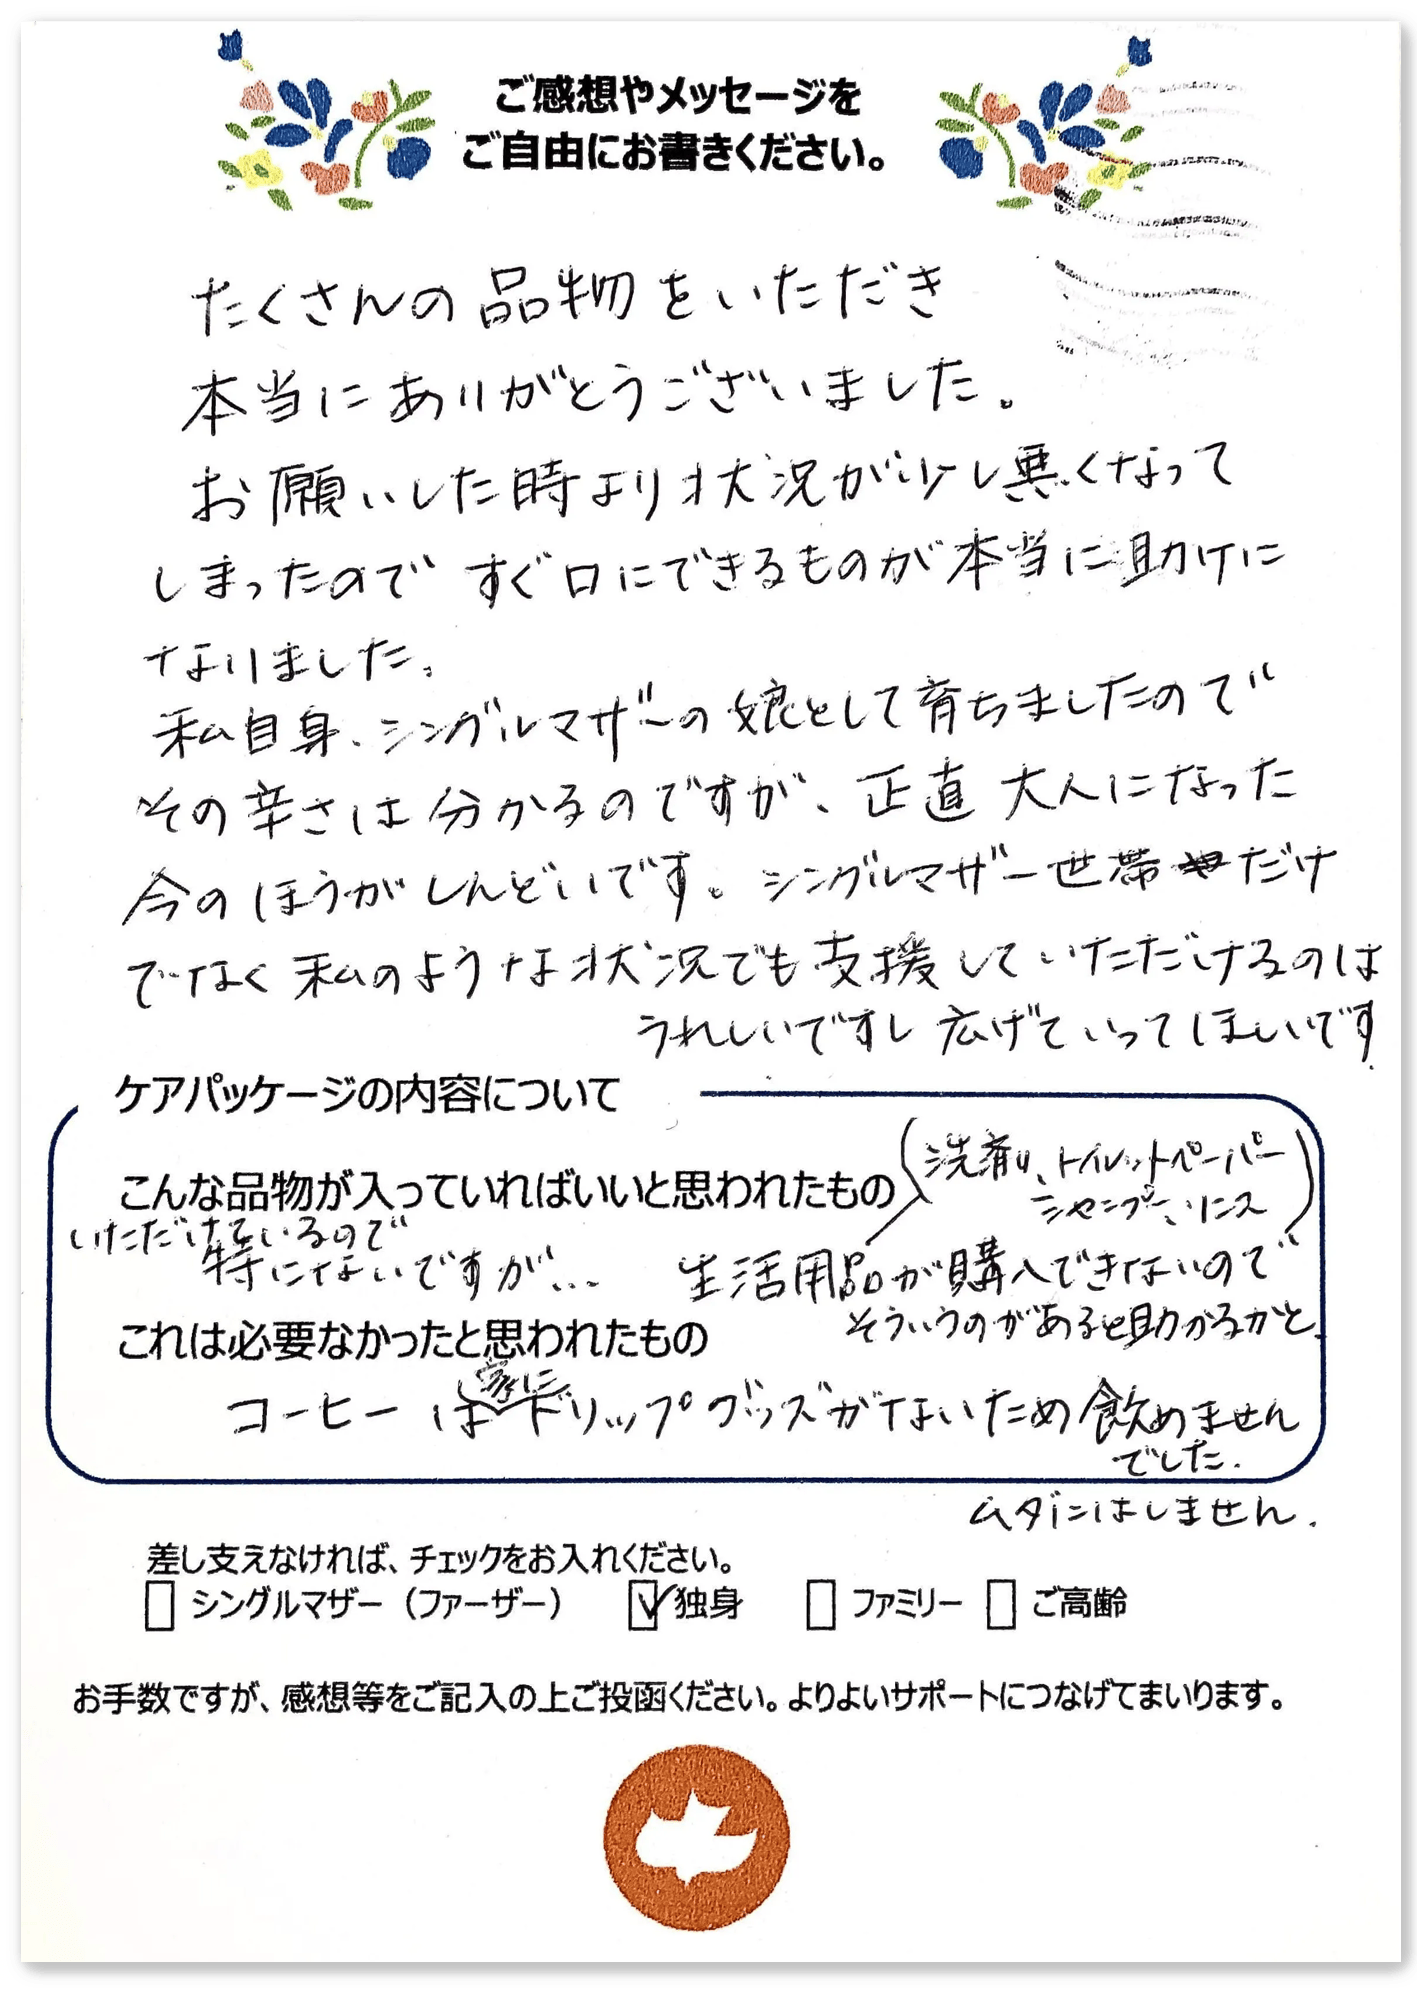 ご感想やメッセージを
ご自由にお書きください。
たくさんの品物をいただき
本当にありがとうございました。
お願いした時より状況が少し悪くなって
しまったので すぐ口にできるものが本当に助けに
なりました。
私自身、シングルマザーの娘として育ちましたので
その辛さは分かるのですが、正直 大人になった
今のほうがしんどいです。シングルマザー世帯だけ
でなく私のような状況でも支援していただけるのは
うれしいですし 広げていってほしいです
ケアパッケージの内容について
こんな品物が入っていればいいと思われたもの
(洗剤、トイレットペーパー
シャンプー、リンス)
いただけているので
特にないですが… 生活用品が購入できないので
そういうのがあると助かるかと。
これは必要なかったと思われたもの
コーヒーは家にドリップグッズがないため飲めません
でした。
ムダにはしません。
差し支えなければ、チェックをお入れください。
□ シングルマザー（ファーザー） ☑ 独身 □ ファミリー □ ご高齢
お手数ですが、感想等をご記入の上ご投函ください。よりよいサポートにつなげてまいります。